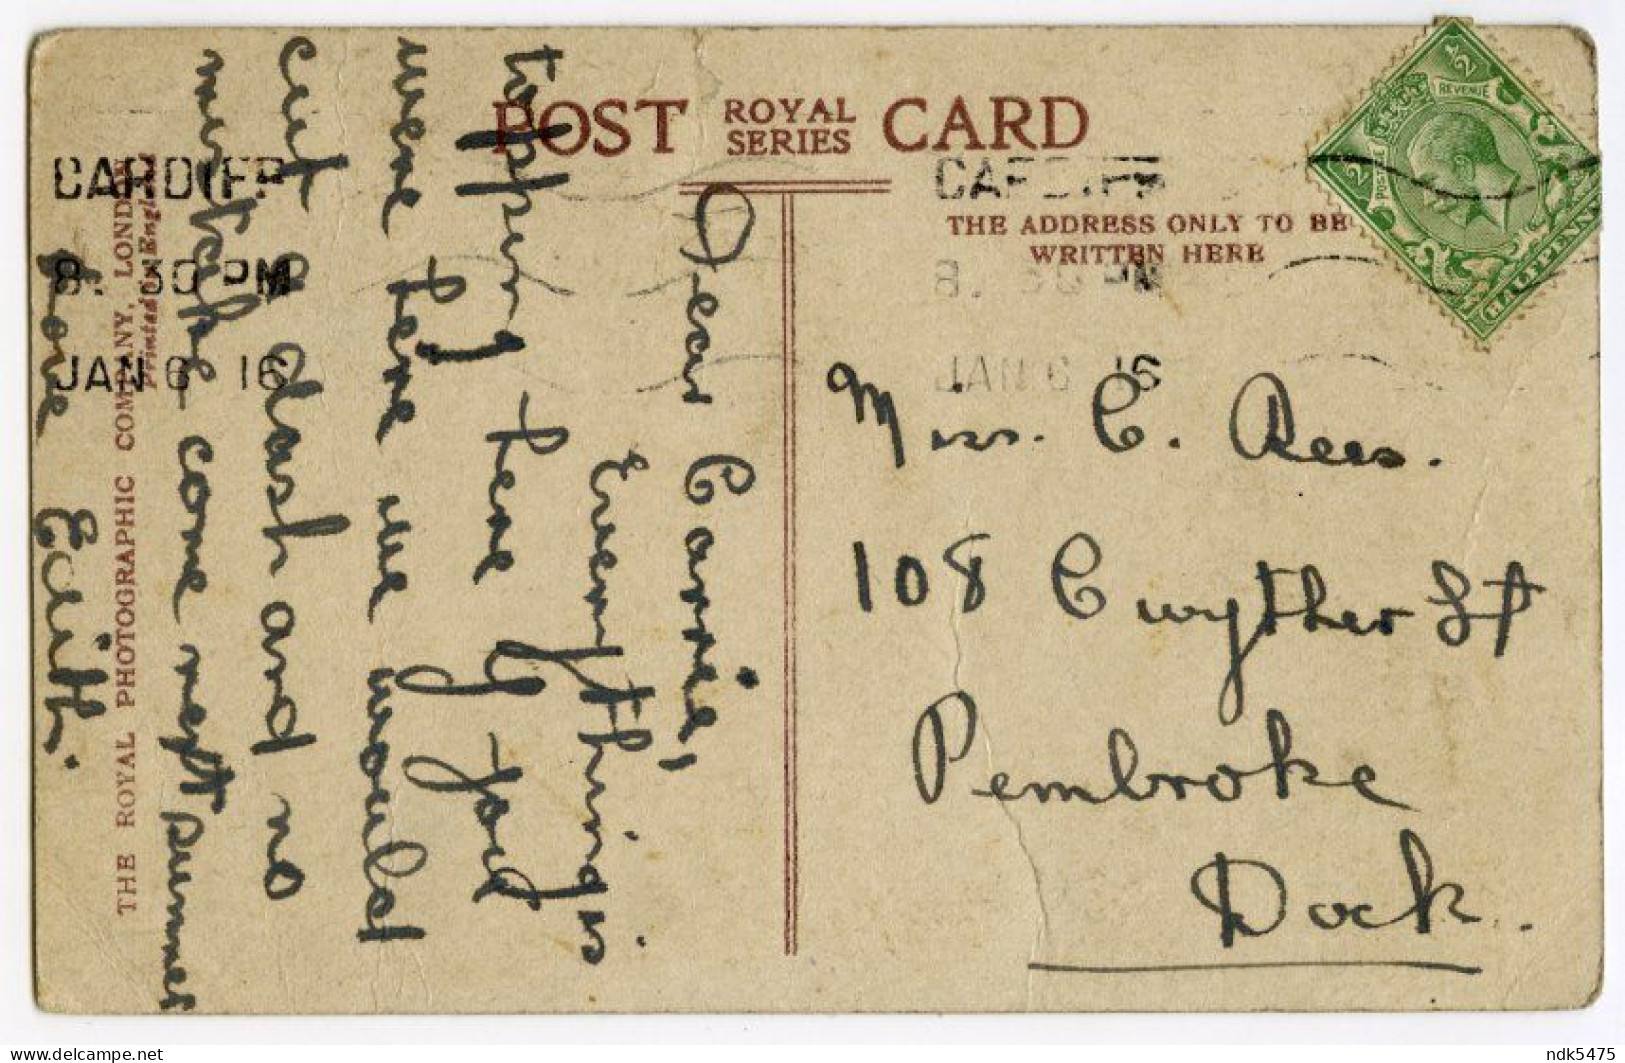 POST ROYAL SERIES CARD
THE ADDRESS ONLY TO BE
WRITTEN HERE
CARDIFF
8. 30 PM
JAN 6 16
CARDIFF
8. 30 PM
JAN 6 16
REVENUE
POSTAGE
1/2
1/2
HALFPENNY
Dear Carrie,
Everything is
topping here if you
were here we would
cut a dash and no
mistake come next summer
Love Edith.
Miss. C. Rees.
108 Gwyther St
Pembroke
Dock.
THE ROYAL PHOTOGRAPHIC COMPANY, LONDON
Printed in England
ndk5475